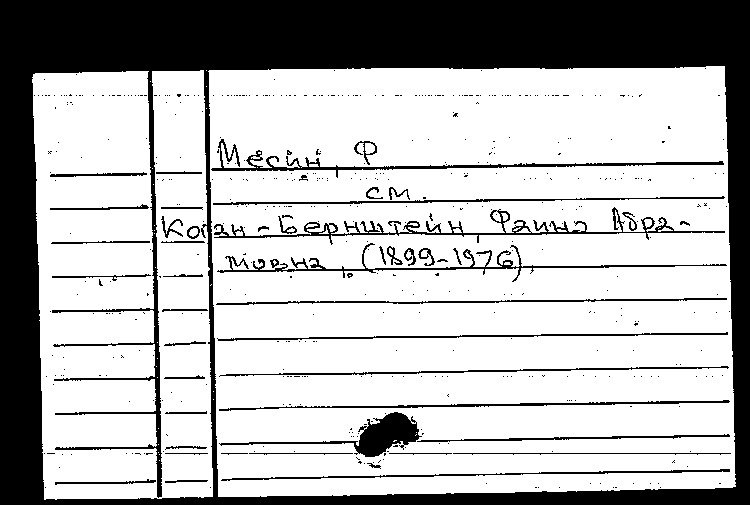 Месин, Ф
см.
Коган-Бернштейн, Фаина Абра-
мовна, (1899-1976),